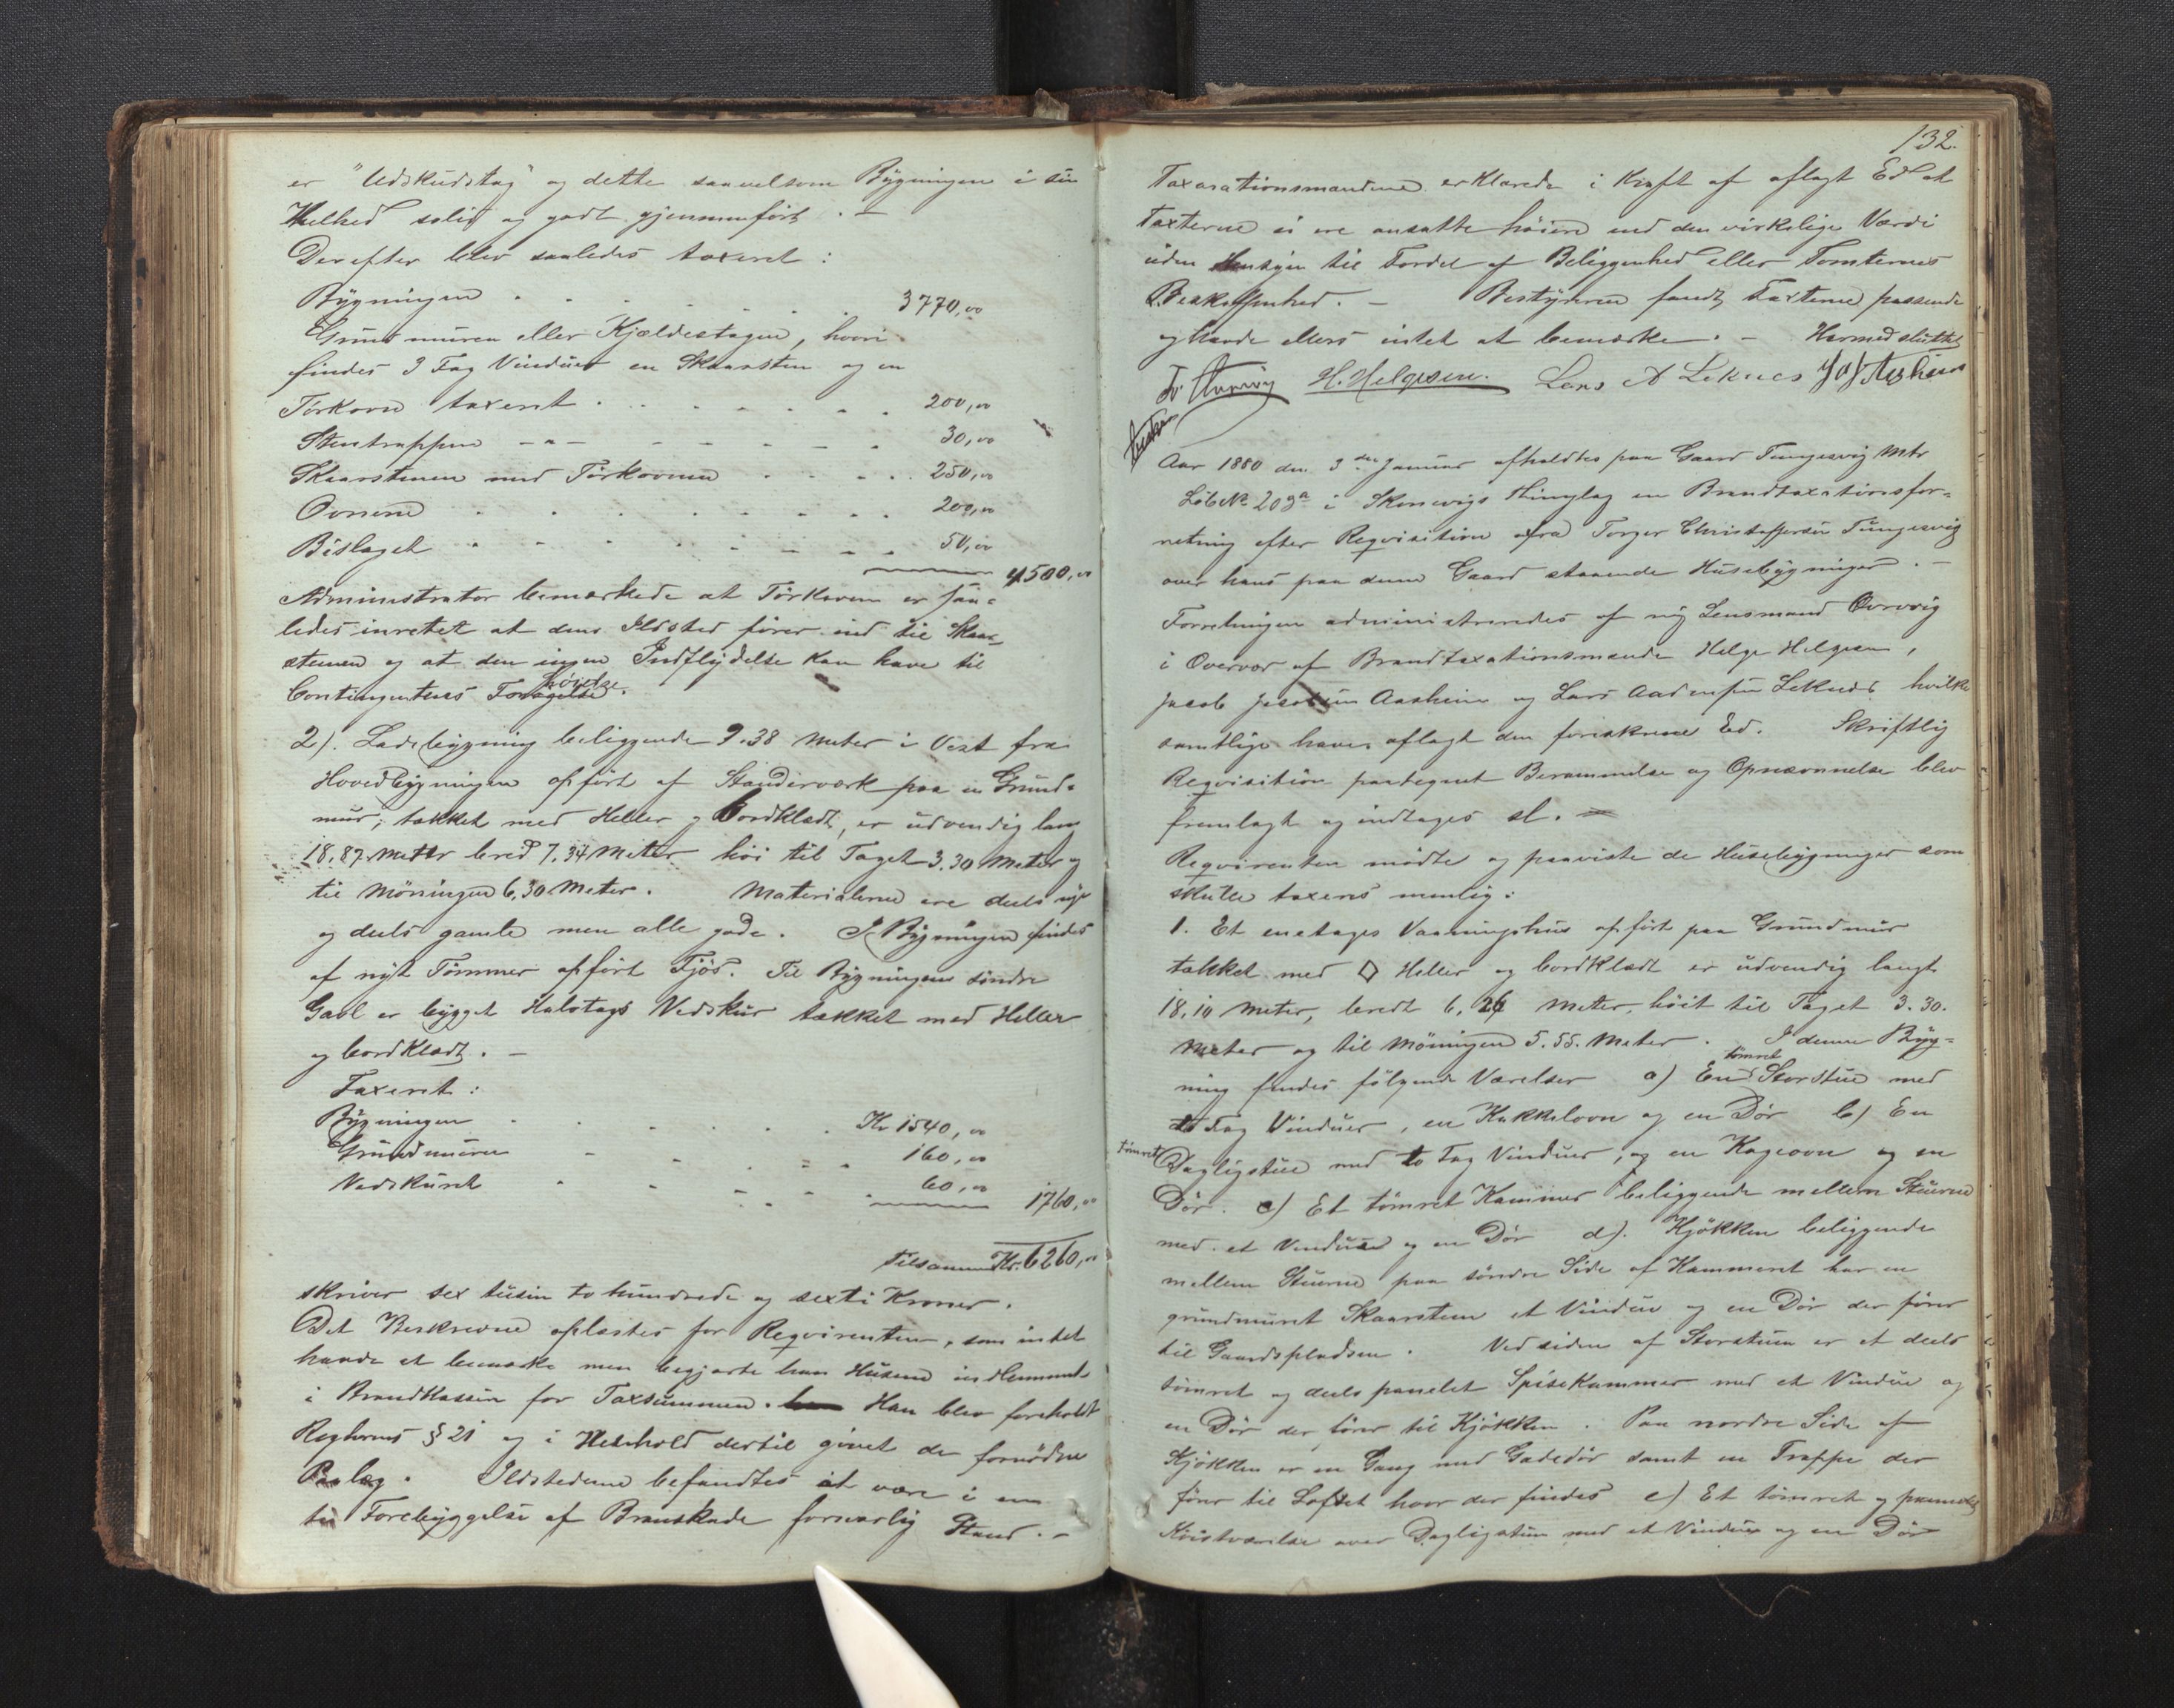 er "Udskudstag" og dette saavelsom Bygningen i sin
Helhed solid og godt gjennemført. –
Derefter blev saaledes taxeret:
Bygningen . . . . . 3770,00
Grundmuren eller Kjælderetagen, hvori
findes 3 Fag Vinduer en Skaarsten og en
Tørkovn taxeret . . . . . . 200,00
Stentrappen –"– – – – . 30,00
Skaarstenen med Tørkovnen . . . . 250,00
Ovnene . . . . . . . 200,00
Bislaget . . . . . . . 50,00
4500,00
Administrator bemærkede at Tørkovnen er saa-
ledes inretet at dens Ildsted fører ind til Skaar-
stenen og at den ingen Indflydelse kan have til
Contingentets Forhøielse.
2). Ladebygning beliggende 9.38 Meter i Vest fra
Hovedbygningen opført af Standerværk paa en Grund-
mur, takket med Heller og bordklædt, er udvendig lang
18,87 Meter bred 7,34 Meter høi til Taget 3.30 Meter og
til Mønningen 6,30 Meter. Materialerne ere deels nye
og deels gamle men alle gode. I Bygningen findes
af nyt Tømmer opført Fjøs. Til Bygningens søndre
Gavl er bygget Halvtags Vedskur tækket med Heller
og bordklædt. –
Taxeret:
Bygningen . . . . . Kr 1540,00
Grundmuren - - . . . 160,00
Vedskuret . . . . . 60,00
1760,00
Tilsammen Kr. 6260,00
skriver sex tusin to hundrede og sexti Kroner.
Det Beskrevne oplæstes for Reqvirenten, som intet
havde at bemærke men begjærte han Husene indlemmet
i Brandkassen for Taxsummen. Han blev foreholdt
Reglernes § 21 og i Henhold dertil givet de fornødne
Paalæg. Ildstederne befandtes at være i en
til Forebyggelse af Branskade forsvarlig Stand. –
132.
Taxarationsmændene erklærede i Kraft af aflagt Ed at
Taxterne ei ere ansatte høiere end den virkelige Værdi
uden Hensyn til Fordel af Beliggenhed eller Tomternes
Beskaffenhed. – Bestyreren fandt Taxterne passende
og havde ellers intet at bemærke. – Hermed sluttet
H. Helgesen. Lars A Leknes
Aar 1880 den 3die Januar afholdtes paa Gaard Tungesvig Mtr
Løbe No 203a i Skonevigs Thinglag en Brandtaxationsfor-
retning efter Reqvisition fra Torger Christoffersen Tungesvig
over hans paa denne Gaard staaende Husebygninger. –
Forretningen administreredes af mig Lensmand
i Overvær af Brandtaxationsmænde Helge Helgesen,
Jacob Jacobsen Aasheim og Lars Aadensen Leknes hvilke
samtlige haver aflagt den foreskrevne Ed. Skriftlig
Reqvisition paategnet Berammelse og Opnævnnelse blev
fremlagt og indtages sl.
Reqvirenten mødte og paaviste de Husebygninger som
skulle taxeres nemlig:
1. Et enetages Vaaningshus opført paa Grundmur
takket med ◇ Heller og bordklædt er udvendig langt
18,10 Meter, bredt 6,24 Meter, høit til Taget 3.30.
Meter og til Møningen 5.55. Meter. I denne Byg-
ning findes følgende Værelser a) En tømret Storstue med
to Fag Vinduer, en Kakkelovn og en Dør b) En
tømret Dagligstue med to Fag Vinduer, og en Kogeovn og en
Dør. c) Et tømret Kammer beliggende mellem Stuerne
med et Vindue og en Dør d). Kjøkken beliggende
mellem Stuerne paa søndre Side af Kammeret har en
grundmuret Skaarsten et Vindue og en Dør der fører
til Gaardspladsen. Ved siden af Storstuen er et deels
tømret og deels panelet Spisekammer med et Vindue og
en Dør der fører til Kjøkken. Paa nordre Side af
Kjøkken er en Gang med Gadedør samt en Trappe der
fører til Loftet hvor der findes e) Et tømret og panelet
Kvistværelse over Dagligstuen med et Vindue og en Dør